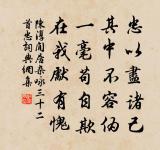 忠以盡諸己
其中不容偽
一毫苟自欺
在我獻有愧
陳淳閒居雜詠三十二
首忠詞典網集